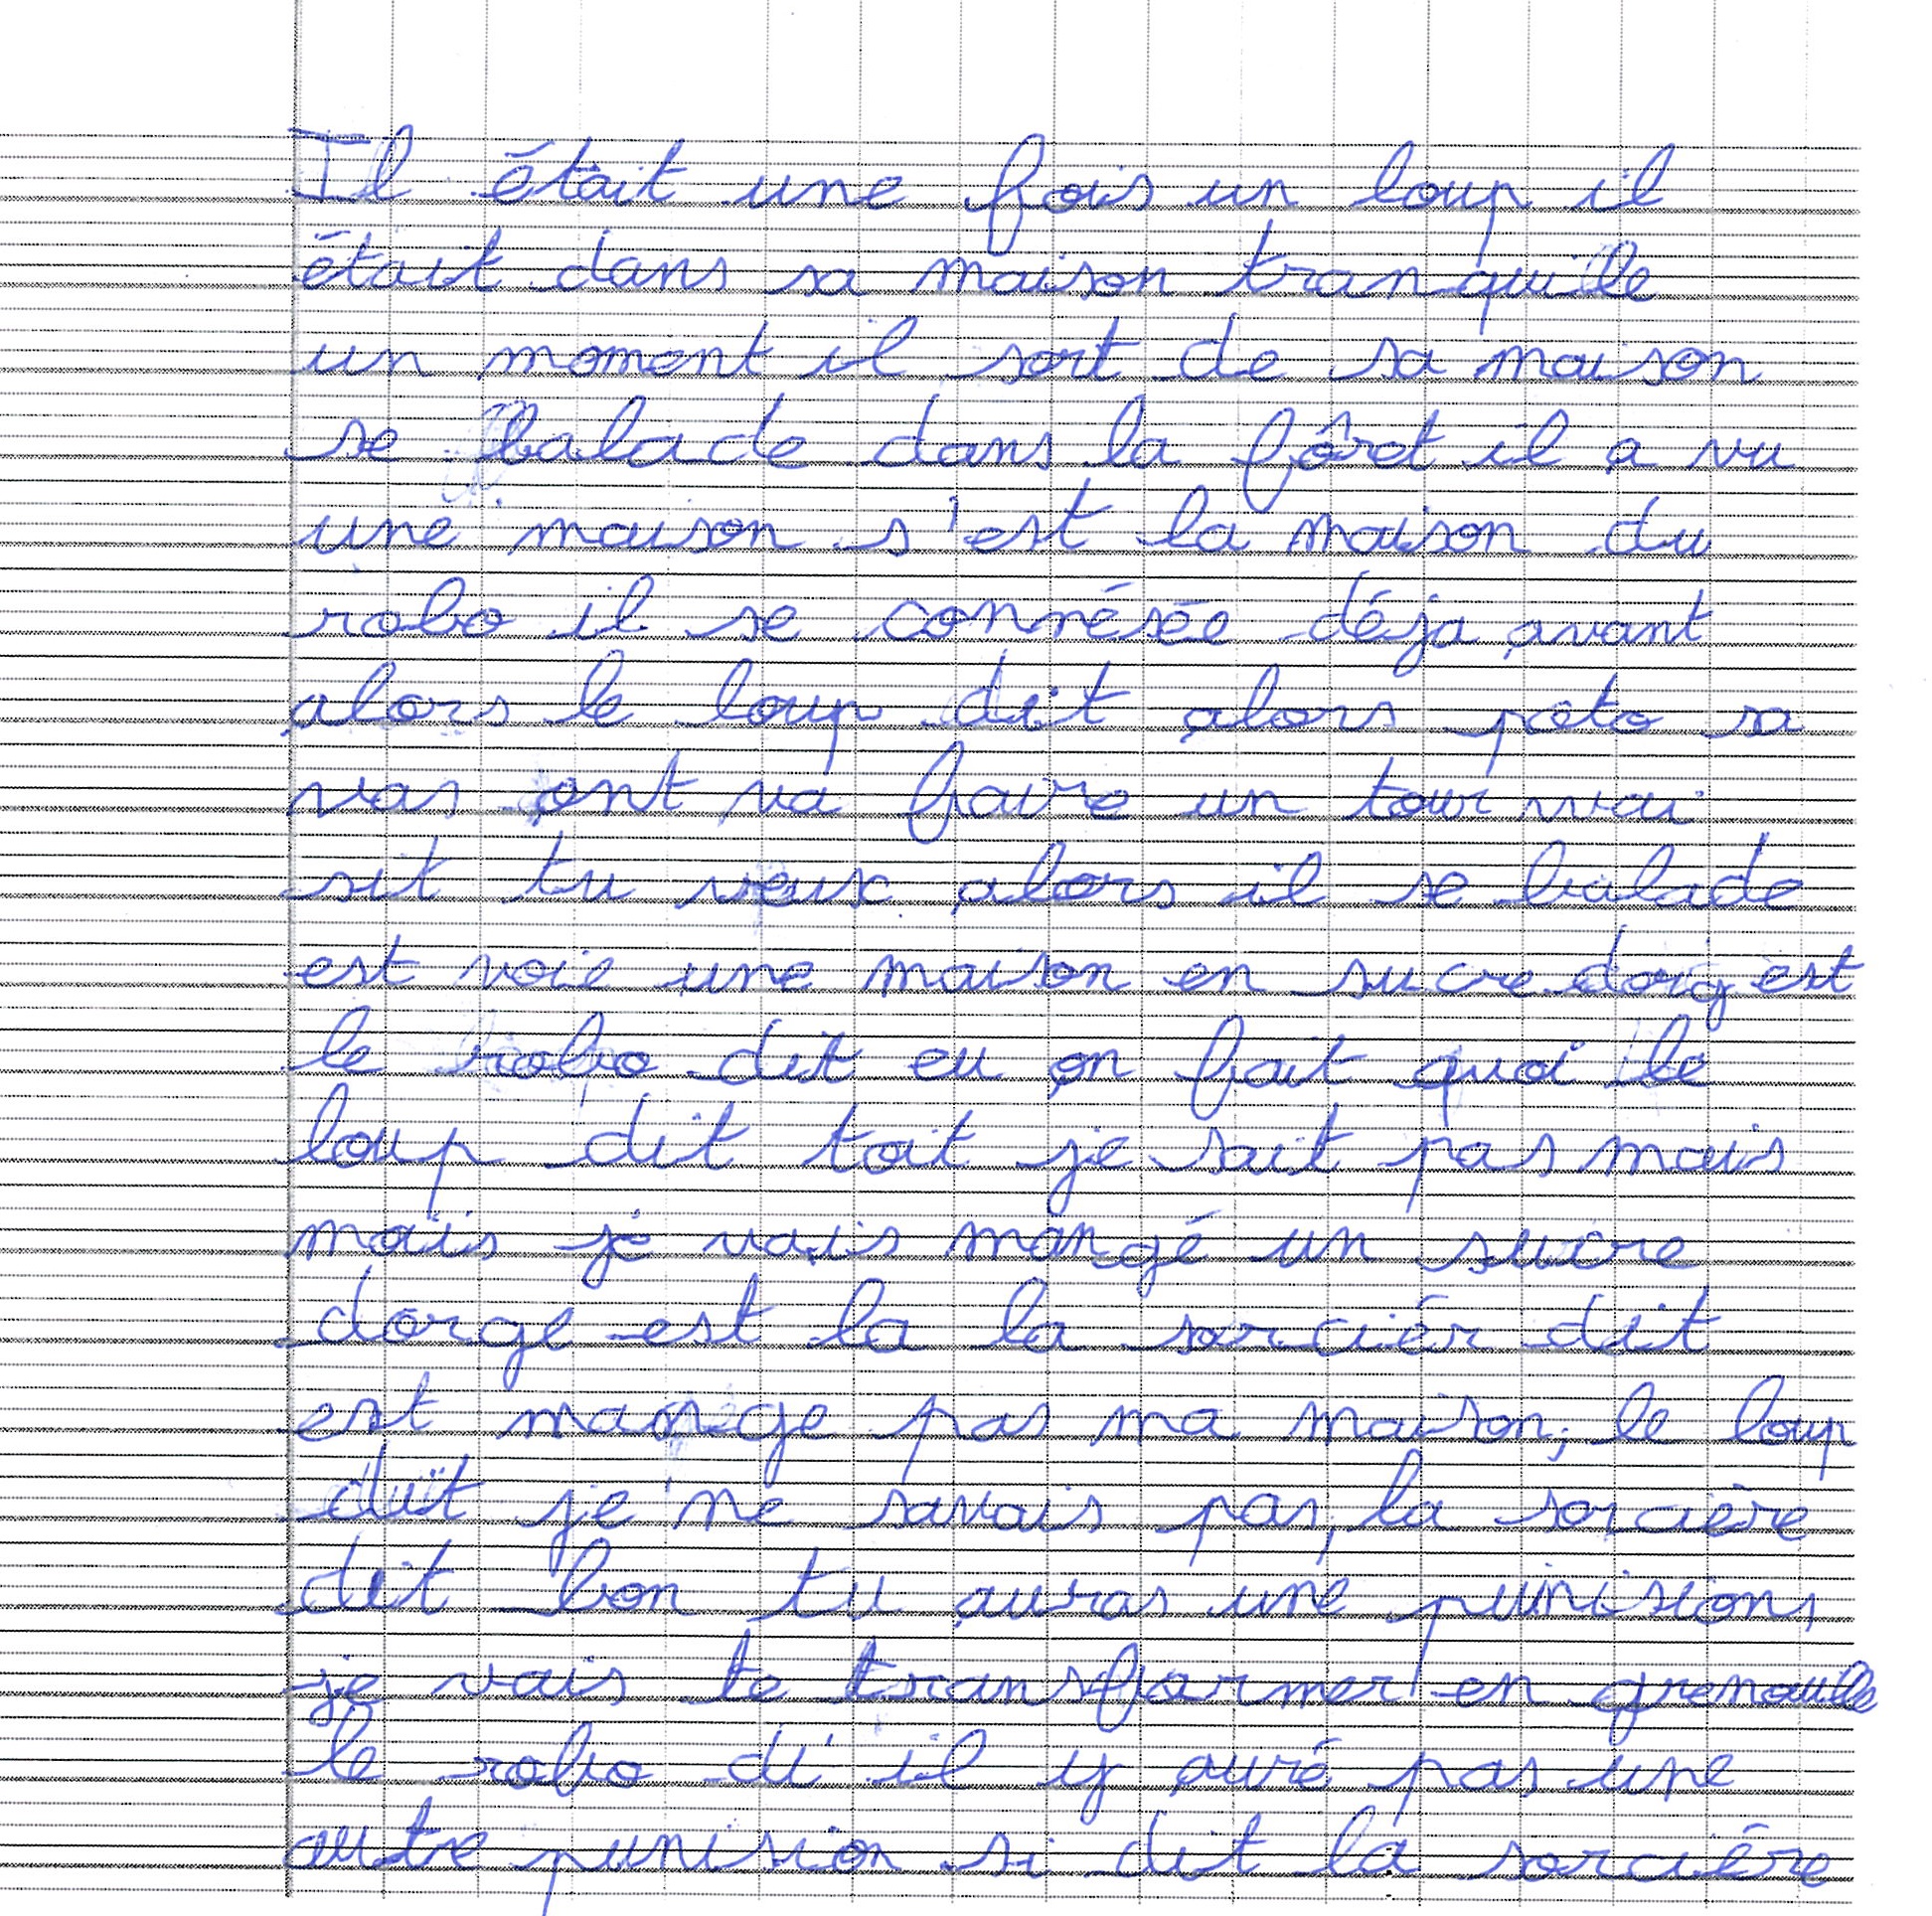 Il était une fois un loup il
était dans sa maison tranquille
un moment il sort de sa maison
se balade dans la fôret il a vu
une maison s'est la maison du
robo il se connésée déja avant
alors le loup dit alors poto sa
vas ont va faire un tour vvai
sit tu veux alors il se balade
est voie une maison en sucre dorg est
le robo dit eu on fait quoi le
loup dit toit je sait pas mais
mais je vais mangé un sucre
dorge est la la sorciér dit
est mange pas ma maison, le loup
dit je ne savais pas, la sorcière
dit bon tu auras une punision,
je vais te transformer en grenouille
le robo di il y auré pas une
autre punision si dit la sorcière